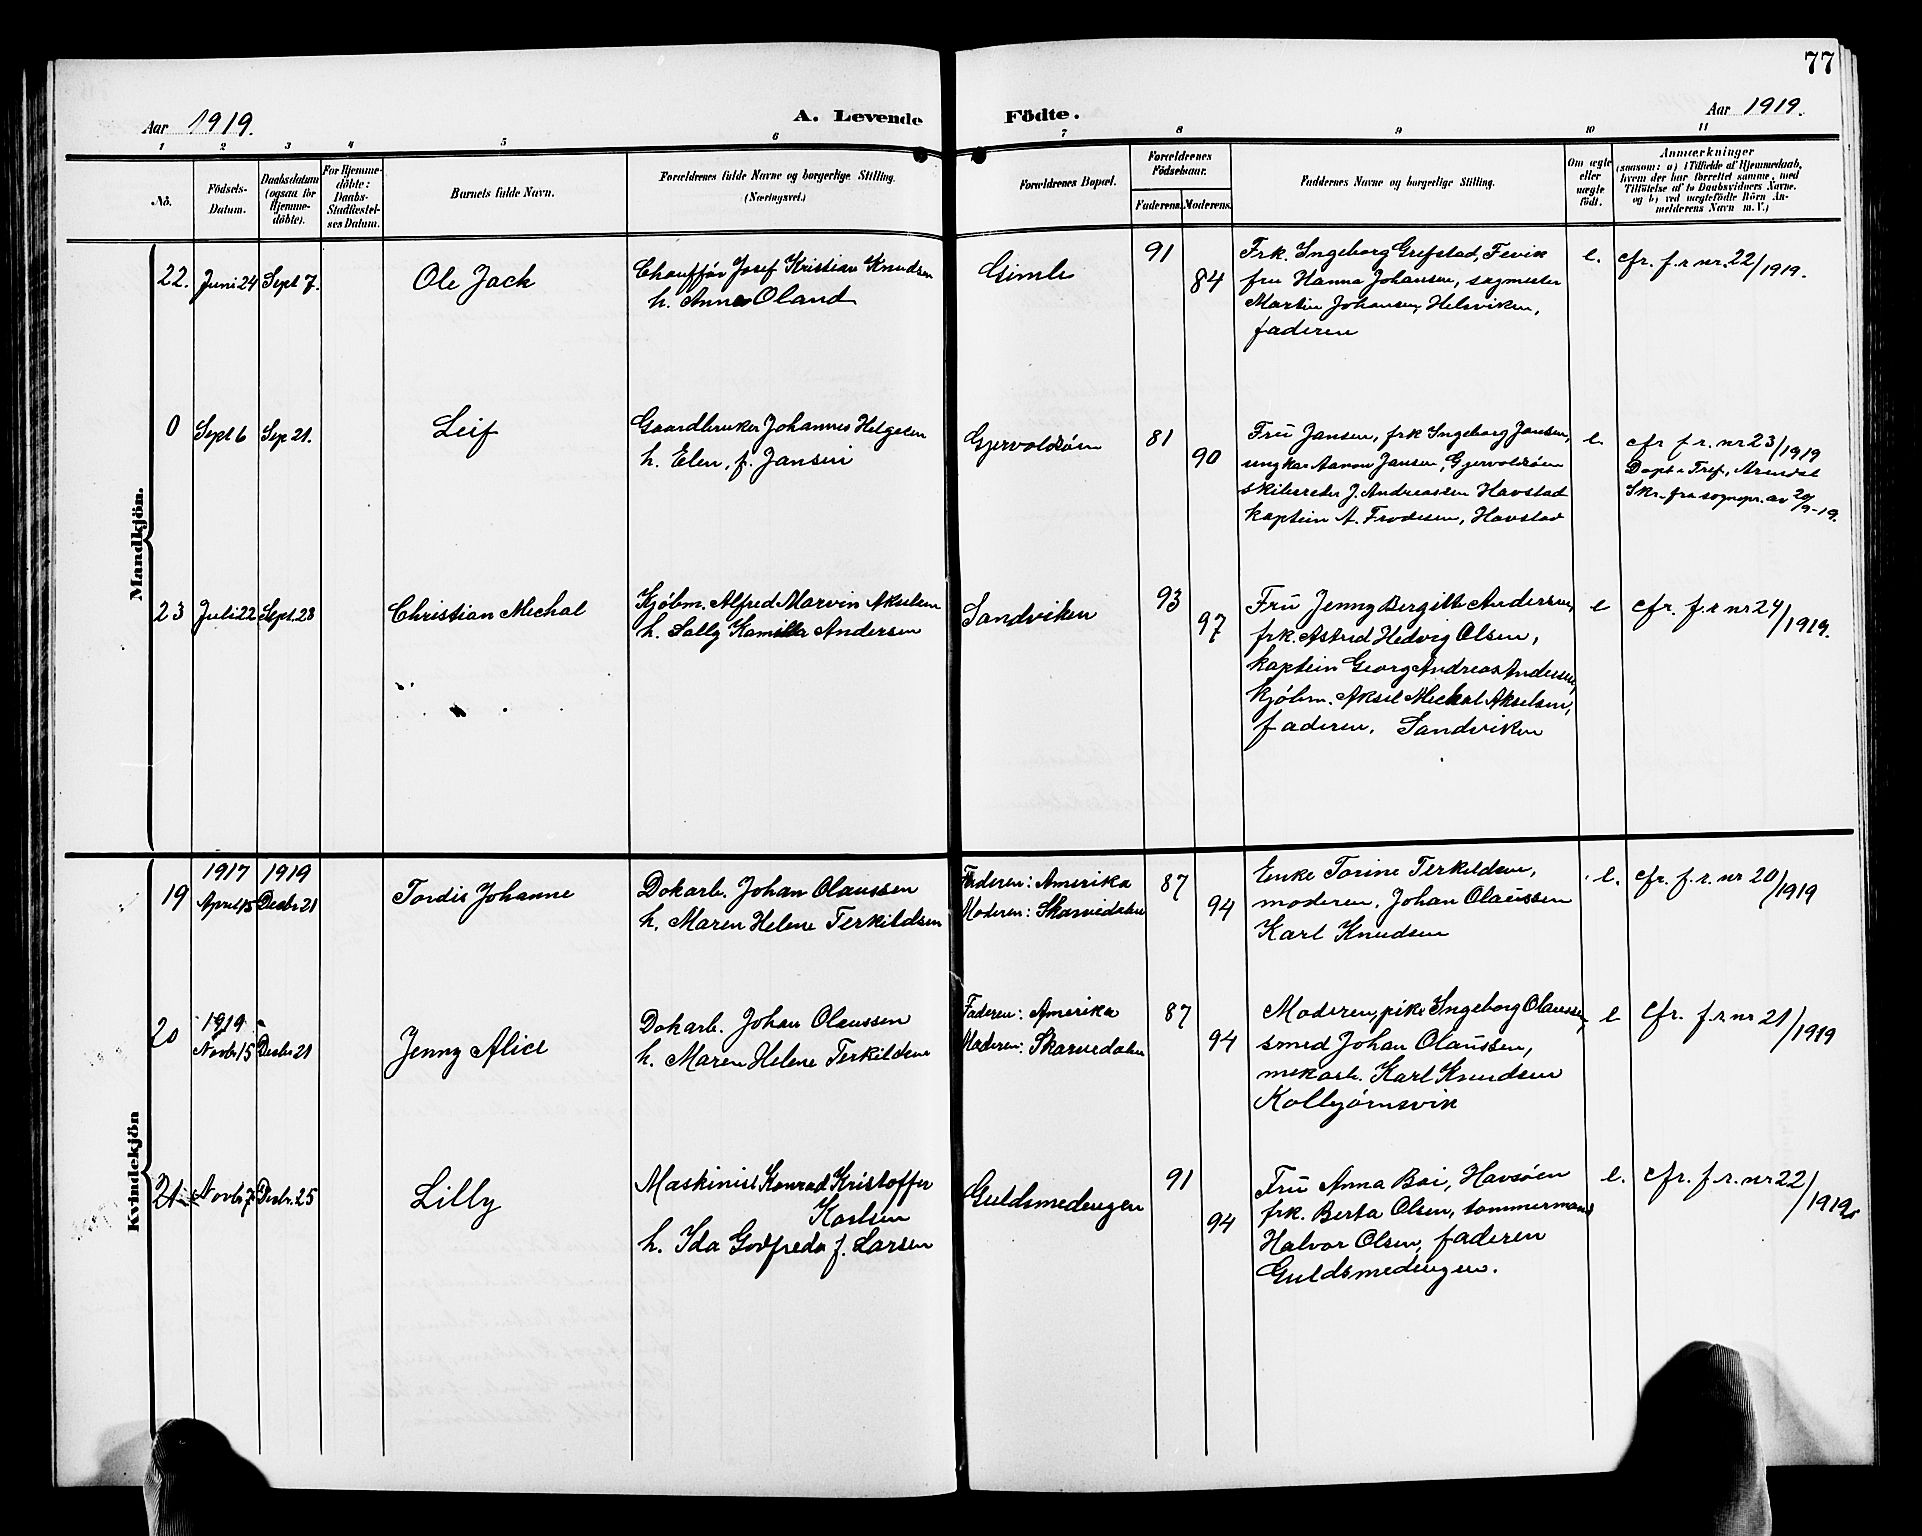 77
Aar 1919.
A. Levende Födte.
Aar 1919.
1 2 3 4 5 6 7 8 9 10 11
No.
Födsels-
Datum.
Daabsdatum
(ogsaa for
Hjemme-
döbte).
For Hjemme-
döbte:
Daabs-
Stadfæstel-
ses Datum.
Barnets fulde Navn.
Forældrenes fulde Navne og borgerlige Stilling.
(Næringsvei.)
Forældrenes Bopæl.
Forældrenes
Födselsaar.
Faderens. Moderens.
Faddernes Navne og borgerlige Stilling.
Om ægte
eller
uægte
født.
Anmærkninger
(saasom: a) i Tilfælde af Hjemmedaab,
hvem der har forrettet samme, med
Tilföielse af to Daabsvidners Navne.
og b) ved uægtefödte Börn An-
melderens Navn m. V.)
Mandkjön.
22. Juni 24 Sept 7.
Ole Jack
Chauffør Josef Kristian Knudsen
h. Anna Oland
Gimle
91
84
Frk. Ingeborg Grefstad, Fevik
fru Hanna Johansen, sagmester
Martin Johansen, Helsviken,
faderen
e.
cfr. f. r nr. 22/1919.
0 Sept 6 Sep 21.
Leif
Gaardbruker Johannes Helgesen
h. Elen, f. Jansen
Gjervoldsøen
81
90
Fru Jansen, frk Ingeborg Jansen,
ungkar Aanon Jansen, Gjervoldsøen
skibsreder J. Andreassen Havstad
kaptein A. Frodesen, Havstad
e.
cfr f. r. nr 23/1919
Døpt i Tref, Arendal
Skr. fra sognepr. av 20/9-19.
23 Juli 22 Sept. 28
Christian Mechal
Kjøbm. Alfred Marvin Akselsen
h. Sally Kamilla Andersen
Sandviken
93
97
Fru Jenny Bergitte Andersen,
frk. Astrid Hedvig Olsen,
kaptein Georg Andreas Andersen,
kjøbm. Aksel Mechal Akselsen,
faderen, Sandviken
e
cfr. f. r nr 24/1919.
Kvindekjön
1917 1919
19 April 15 Decbr 21
Tordis Johanne
Dokarb. Johan Olaussen
h. Maren Helene Terkildsen
Faderen: Amerika
Moderen: Skarvedalen
87
94
Enke Torine Terkildsen,
moderen, Johan Olaussen
Karl Knudsen
e.
cfr. f. r. nr 20/1919
1919
20 Novbr. 15 Decbr 21
Jenny Alice
Dokarb. Johan Olaussen
h. Maren Helene Terkildsen
Faderen: Amerika
Moderen: Skarvedalen
87
94
Moderen, pike Ingeborg Olaussen,
smed Johan Olaussen,
mekarb. Karl Knudsen
Kolbjørnsvik
e
cfr. f. r nr 21/1919
21 Novbr 7 Decbr. 25
Lilly
Maskinist Konrad Kristoffer
Karlsen
h. Ida Godfreda f. Larsen
Guldsmedengen
91
94
Fru Anna Boi, Havsøen
frk. Berta Olsen, tømmermand
Halvor Olsen, faderen
Guldsmedengen.
e.
cfr. f. r. nr 22/1919